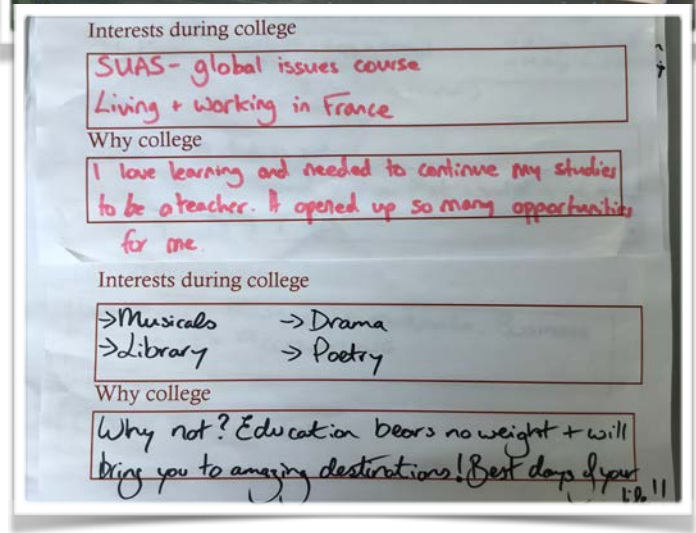 Interests during college
SUAS- global issues course
Living + working in France
Why college
I love learning and needed to continue my studies
to be a teacher. It opened up so many opportunities
for me.
Interests during college
→Musicals → Drama
→Library → Poetry
Why college
Why not? Education bears no weight + will
bring you to amazing destinations! Best days of your
life!!